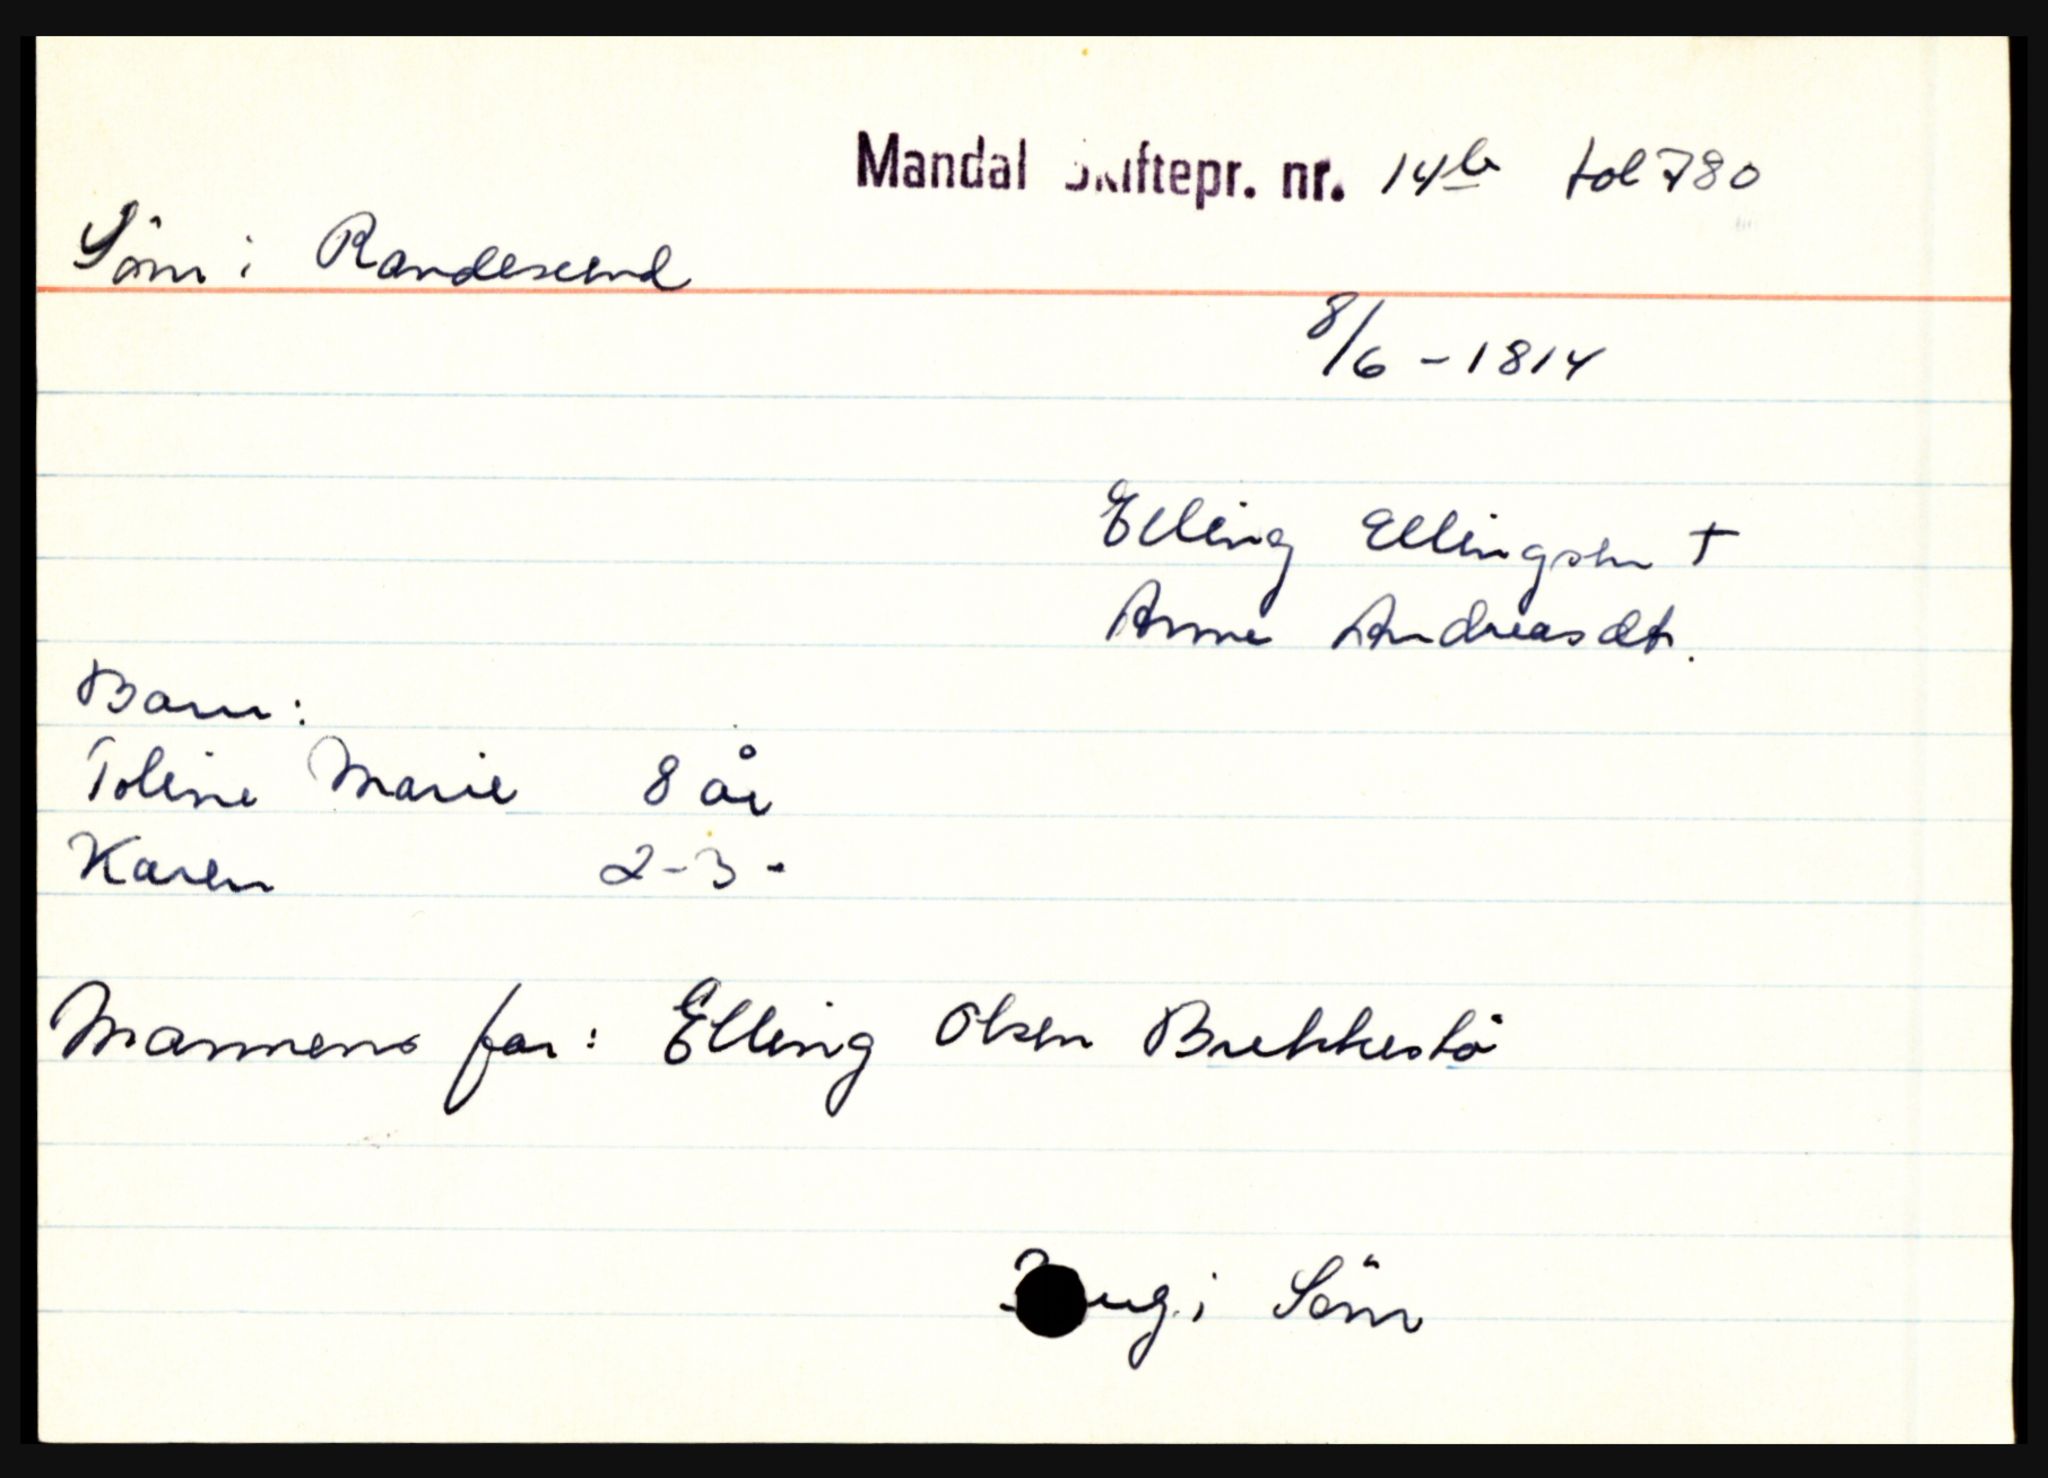 Mandal Skiftepr. nr. 14b fol 780
Söm i Randesund
8/6 - 1814
Elling Ellingsen †
Anne Andreasdt.
Barn:
Toline Marie 8 år
Karen 2-3 -
Mannens far: Elling Olsen Brekkestö
i Söm